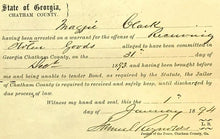 State of Georgia,
CHATHAM COUNTY.
Maggie Clark
having been arrested on a warrant for the offense of Receiving
Stolen Goods alleged to have been committed
in Georgia Chatham County, on the 31st day of
Dec 1893, and being
and being unable to tender Bond, as required by the Statute, the Jailer
of Chatham County is required to receive and safely keep, until thence delivered by
due process of law.
Witness my hand and seal, this the 1st
day of January 1894
Samuel Reynolds L. S.